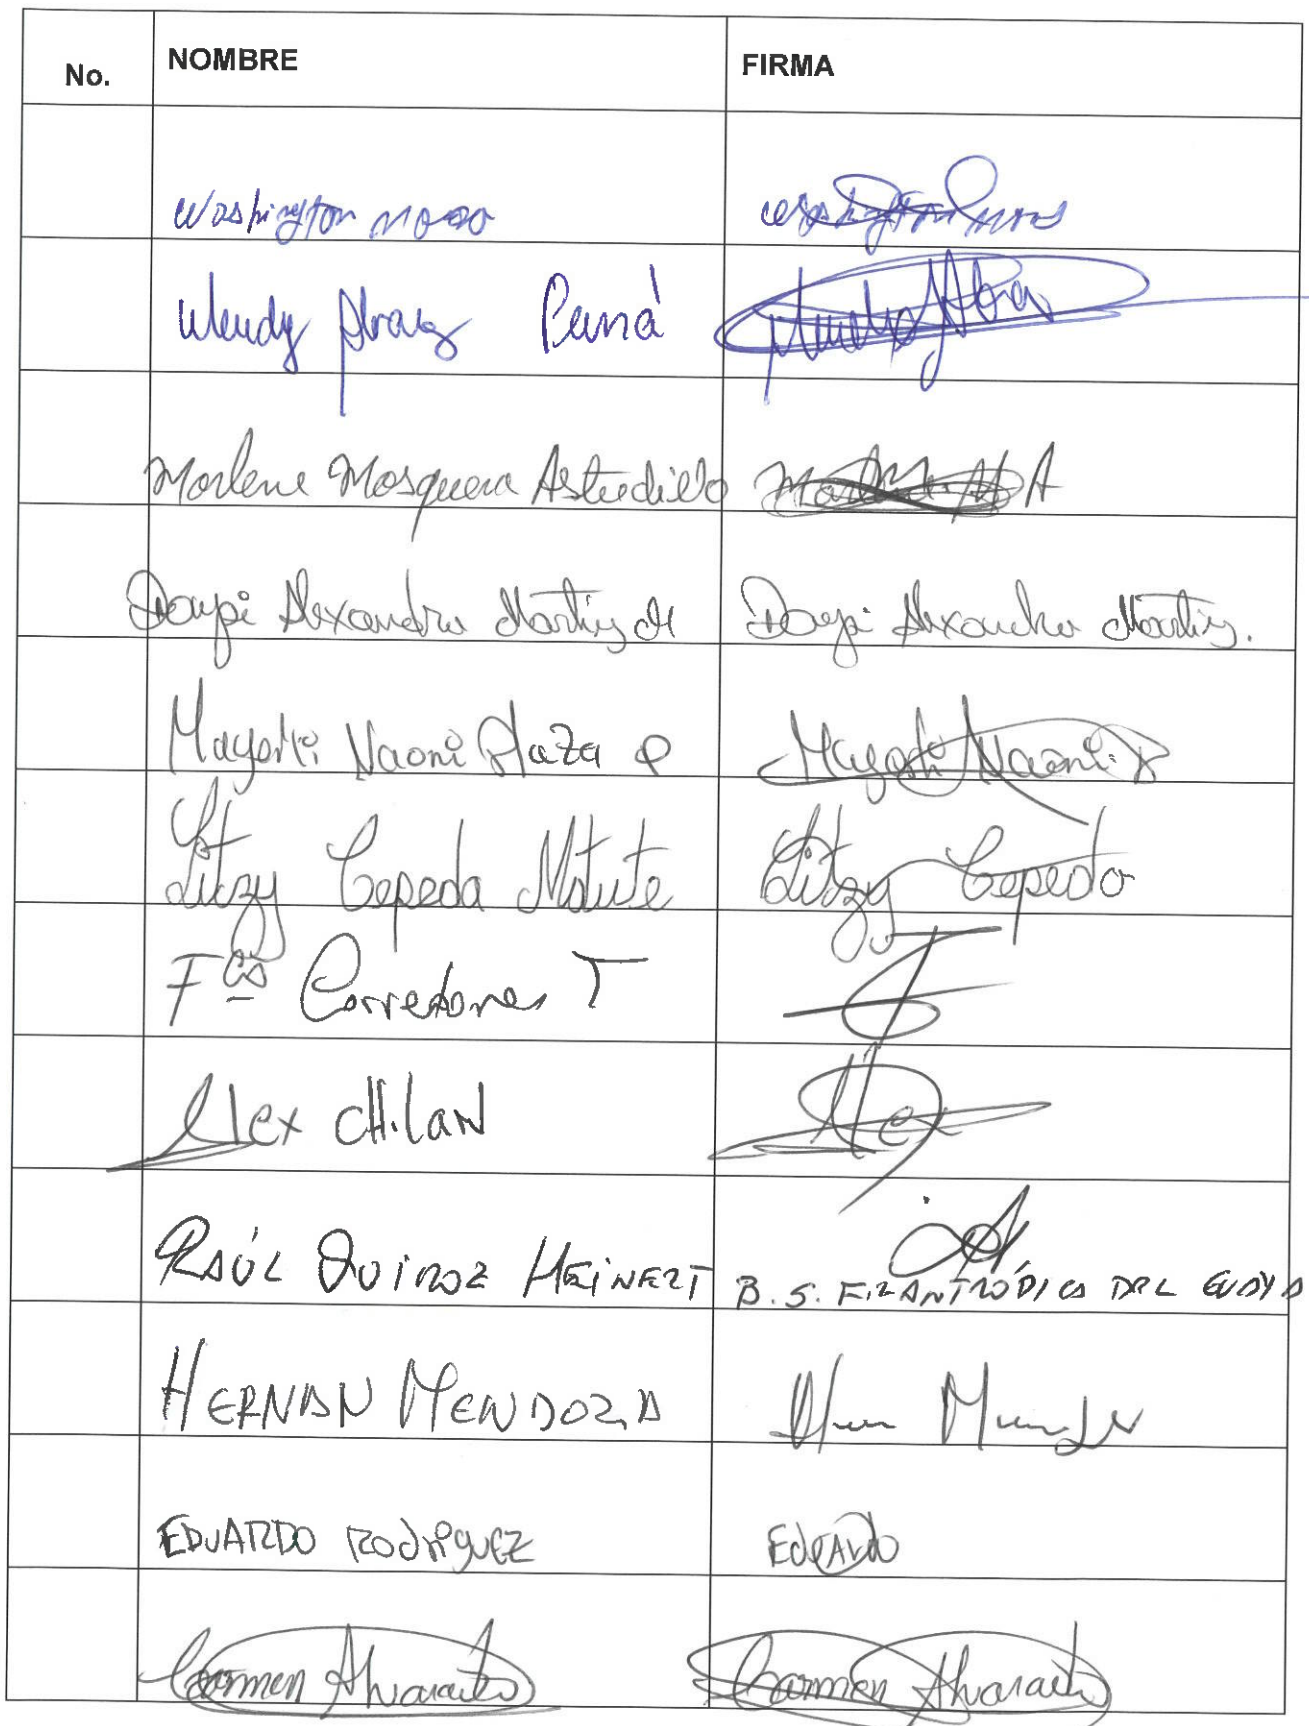 No. NOMBRE FIRMA
Washington
Wendy Puná
Marlene Mosquera Astudillo A
Alexandra Martínez Alexandra Martínez.
Mayerli Naomi Plaza P Mayerli Naomi P
Litzy Cepeda Matute Litzy Cepeda
Fco Corredores T
Alex CHilaN Alex
RAÚL QUIROZ HEINERT
B.S. FILANTRÓPICA DEL GUAYA
HERNAN MENDOZA
EDUARDO RodriguEZ EduARdo
Carmen Alvarado Carmen Alvarado